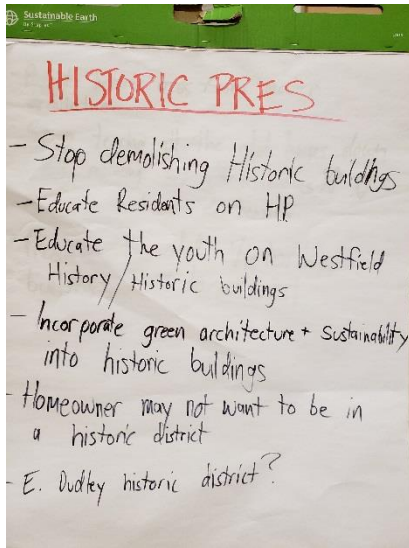 Sustainable Earth
HISTORIC PRES
- Stop demolishing Historic buildings
- Educate Residents on HP
- Educate the youth on Westfield
History / Historic buildings
- Incorporate green architecture + Sustainability
into historic buildings
- Homeowner may not want to be in
a historic district
- E. Dudley historic district?